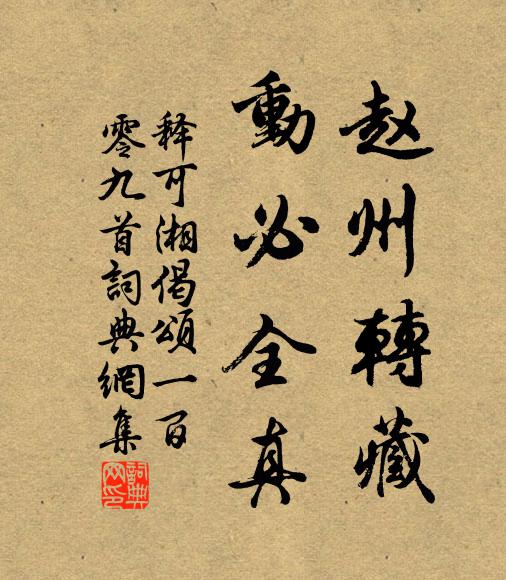 赵州轉藏
動必全真
释可湘偈頌一百
零九首詞典網集
詞典
网印